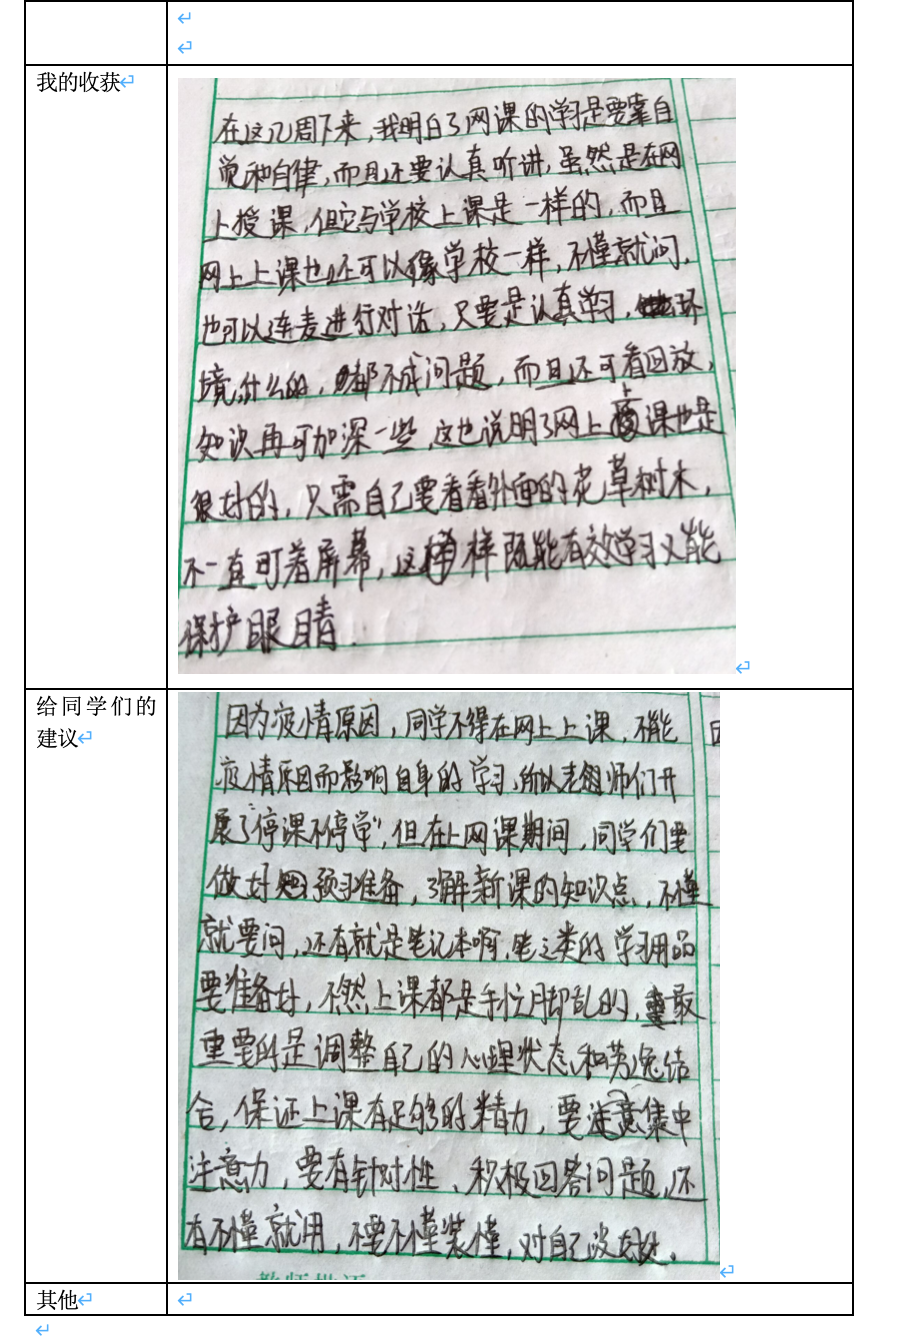 我的收获
在这几周下来,我明白了网课的学习是要靠自
觉和自律,而且还要认真听讲,虽然是在网
上授课,但它与学校上课是一样的,而且
网上上课也还可以像学校一样,不懂就问,
也可以连麦进行对话,只要是认真学习,环
境什么的,都不成问题,而且还可看回放,
知识再可加深一些,这也说明了网上上课也是
很好的,只需自己要看看外面的花草树木,
不一直盯着屏幕,这样既能有效学习又能
保护眼睛.
给同学们的
建议
因为疫情原因,同学不得在网上上课,不能
疫情原因而影响自身的学习,所以老师们开
展了"停课不停学",但在上网课期间,同学们要
做好预习准备,了解新课的知识点,不懂
就要问,还有就是笔记本啊,笔之类的学习用品
要准备好,不然上课都是手忙脚乱的,最
重要的是调整自己的心理状态和劳逸结
合,保证上课有足够的精力,要集中
注意力,要有针对性、积极回答问题,还
有不懂就用,不要不懂装懂,对自己没好处.
其他